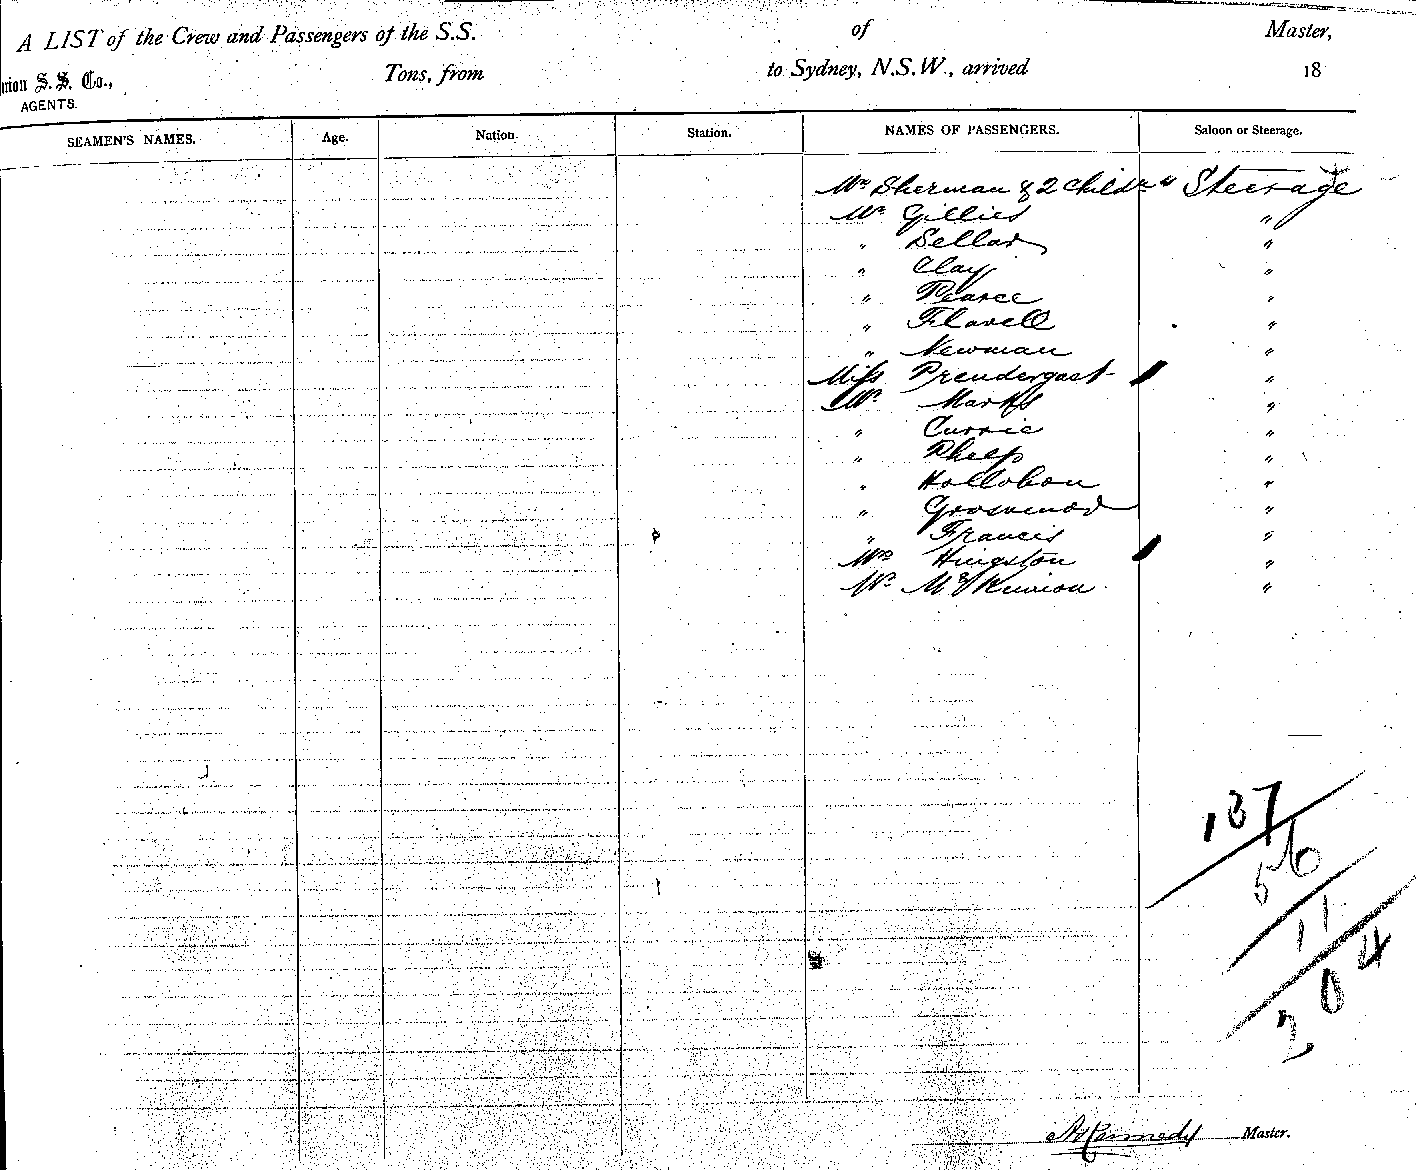 A LIST of the Crew and Passengers of the S.S. of Master,
nion S. S. Co., Tons, from to Sydney, N.S.W., arrived 18
AGENTS.
SEAMEN'S NAMES. Age. Nation. Station. NAMES OF PASSENGERS. Saloon or Steerage.
Mr Sherman & 2 Childrn Steerage
Mr Gillies "
" Sellar "
" Clay "
" Pearce "
" Flavell "
" Newman "
Miss Prendergast "
Mr Marks "
" Currie "
" Phelp "
" Hollobon "
" Grosvenor "
" Francis "
Mrs Hingston "
Mr McKinnon "
137
56
11
204
A Kennedy Master.